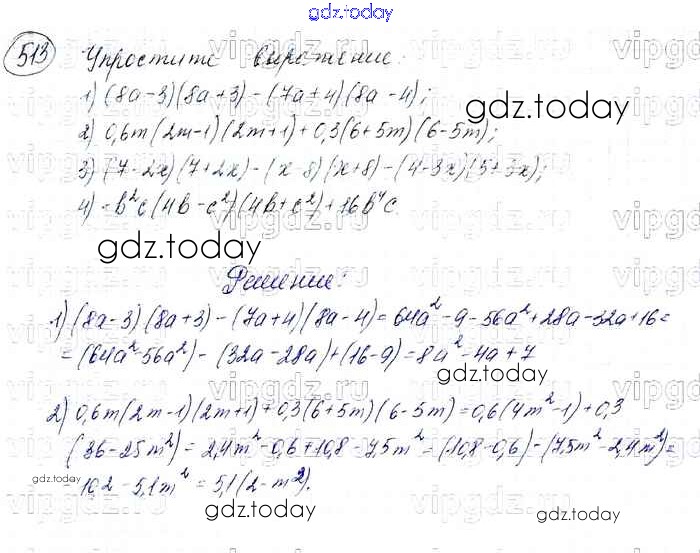 gdz.today
513 Упростите выражение:
1) (8a-3)(8a+3)-(7a+4)(8a-4);
2) 0,6m(2m-1)(2m+1)+0,3(6+5m)(6-5m);
gdz.today
3) (7-2x)(7+2x)-(x-8)(x+8)-(4-3x)(5+3x);
4) -b²c(4b-c²)(4b+c²)+16b⁴c.
gdz.today
Решение:
1) (8a-3)(8a+3)-(7a+4)(8a-4)=64a²-9-56a²+28a-32a+16=
=(64a²-56a²)-(32a-28a)+(16-9)=8a²-4a+7
gdz.today
2) 0,6m(2m-1)(2m+1)+0,3(6+5m)(6-5m)=0,6(4m²-1)+0,3
(36-25m²)=2,4m²-0,6+10,8-7,5m²=(10,8-0,6)-(7,5m²-2,4m²)=
10,2-5,1m²=5,1(2-m²).
gdz.today
gdz.today
vipgdz.ru